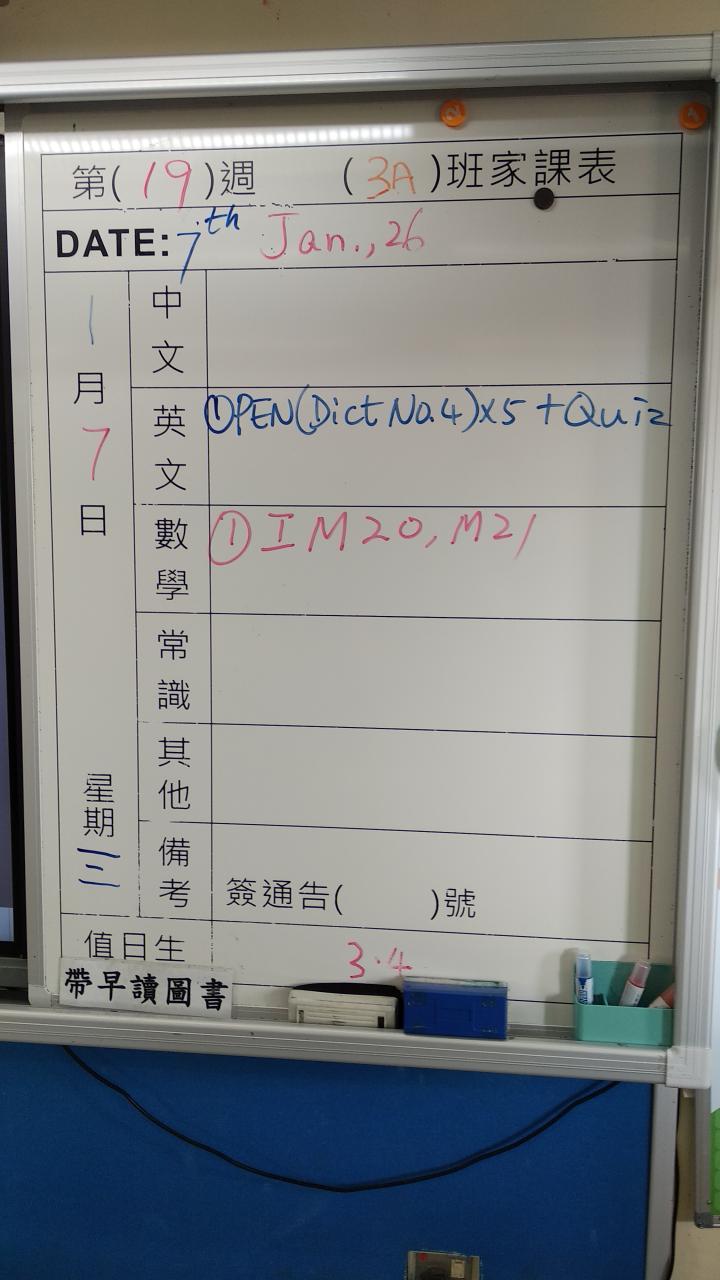 第(19)週 (3A)班家課表
DATE: 7th Jan., 26
1月7日 星期三
中文
英文 ①PEN(Dict No.4)x5 + Quiz
數學 ① IM20, M21
常識
其他
備考 簽通告( )號
值日生 3.4
帶早讀圖書